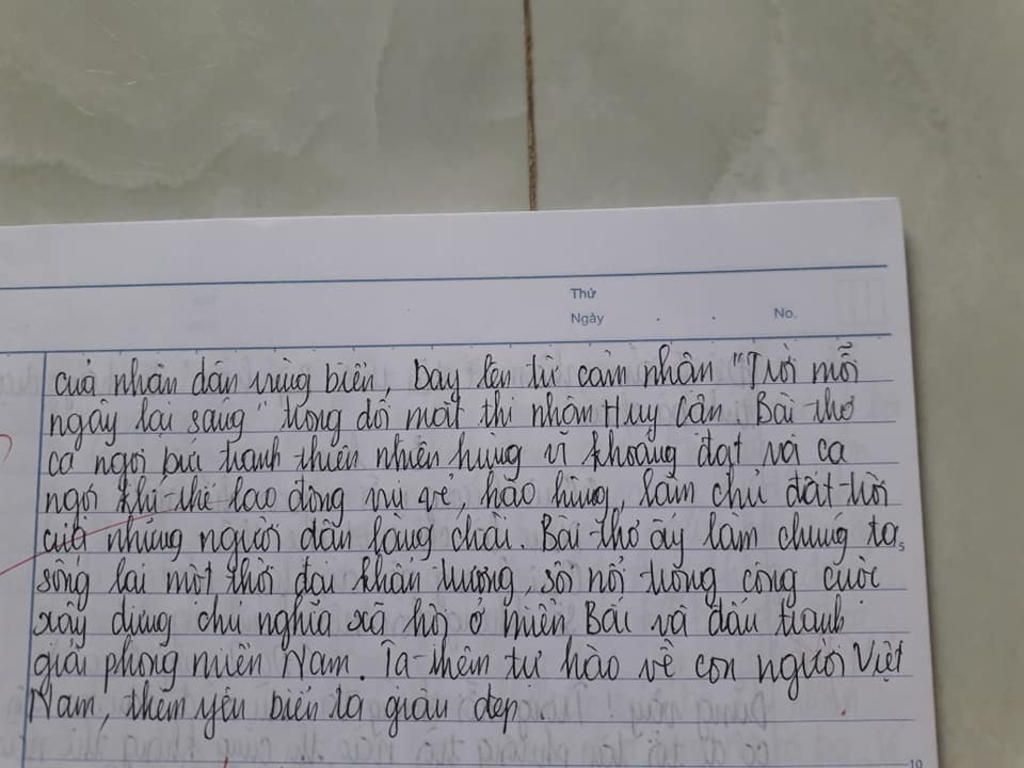 Thứ
Ngày No.
của nhân dân vùng biển, bay lên từ cảm nhận "Trời mỗi
ngày lại sáng" trong đôi mắt thi nhân Huy Cận. Bài thơ
ca ngợi bức tranh thiên nhiên hùng vĩ khoáng đạt và ca
ngợi khí thế lao động vui vẻ, hào hùng, làm chủ đất trời
của những người dân làng chài. Bài thơ ấy làm chúng ta
sống lại một thời đại khẩn trương, sôi nổi trong công cuộc
xây dựng chủ nghĩa xã hội ở miền Bắc và đấu tranh
giải phóng miền Nam. Ta thêm tự hào về con người Việt
Nam, thêm yêu biển ta giàu đẹp.
10